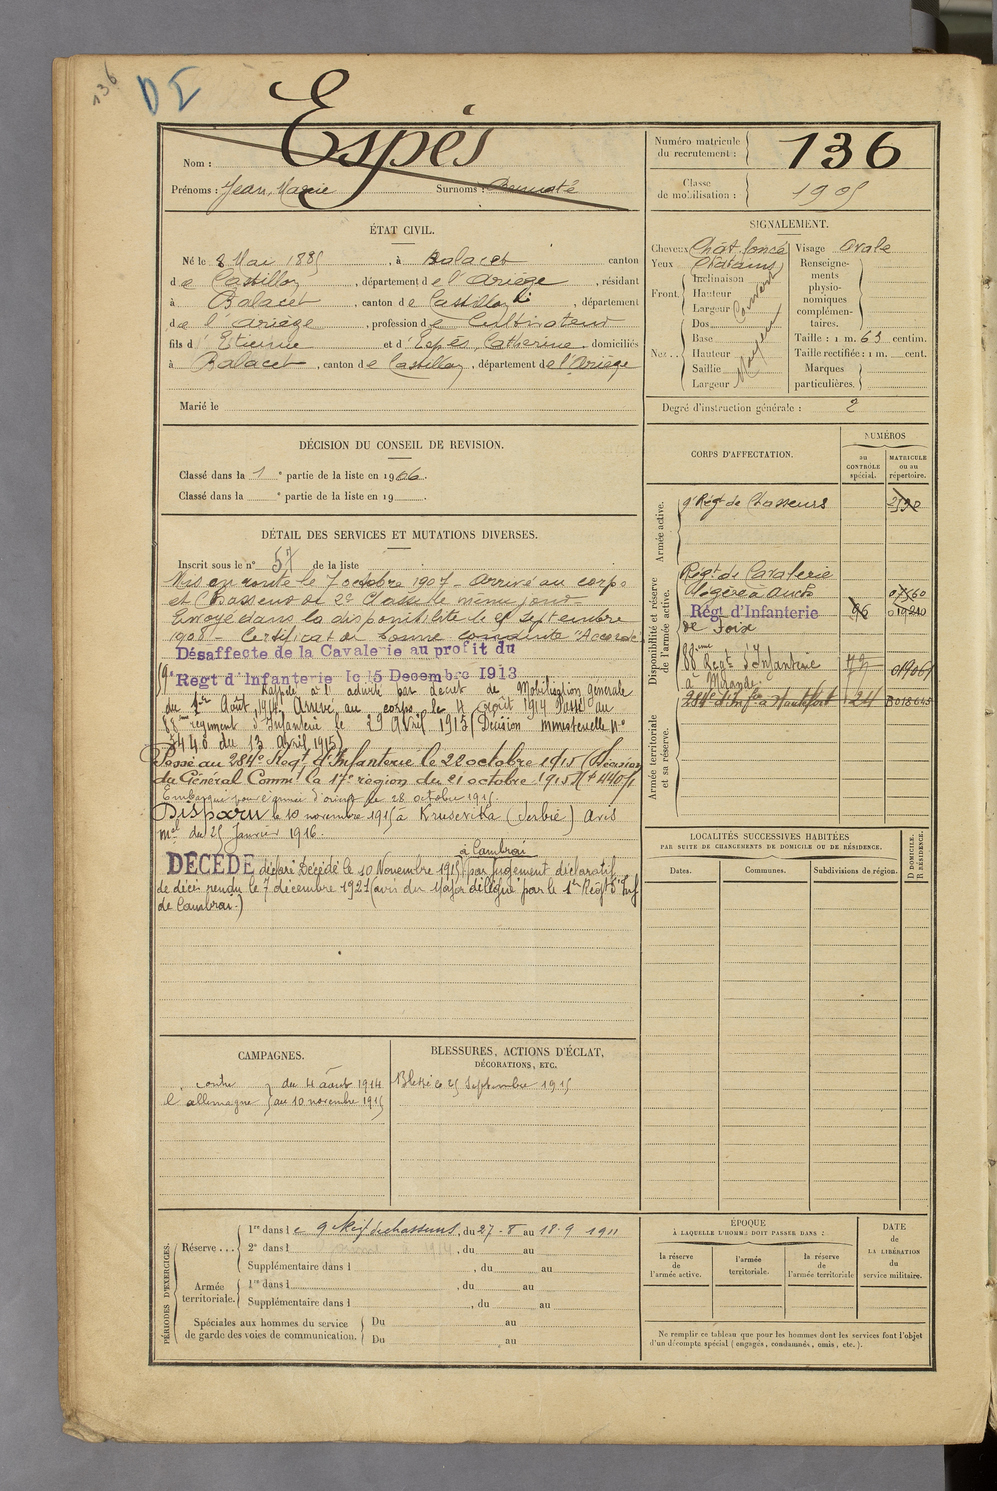 136
DE
Espès
Nom :
Prénoms : Jean Marie Surnoms :
Numéro matricule du recrutement : 136
Classe de mobilisation : 1905
ÉTAT CIVIL.
Né le 8 Mai 1885, à Balacet canton
de Castillon, département de l'Ariège, résidant
à Balacet, canton de Castillon, département
de l'Ariège, profession de Cultivateur
fils d'Etienne et d'Espès Catherine, domiciliés
à Balacet, canton de Castillon, département de l'Ariège
Marié le
SIGNALEMENT.
Cheveux Chât. foncé
Yeux Chatains
Front. Inclinaison
Hauteur
Largeur
Nez... Dos
Base
Hauteur
Saillie
Largeur
Moyen
Visage Ovale
Renseignements physionomiques complémentaires.
Taille : 1 m. 63 centim.
Taille rectifiée : 1 m. cent.
Marques particulières.
Degré d'instruction générale : 2
DÉCISION DU CONSEIL DE REVISION.
Classé dans la 1e partie de la liste en 1906.
Classé dans la e partie de la liste en 19 .
DÉTAIL DES SERVICES ET MUTATIONS DIVERSES.
Inscrit sous le n° 57 de la liste
Mis en route le 7 octobre 1907 - Arrivé au corps
et Chasseur de 2e Classe le même jour
Envoyé dans la disponibilité le Septembre
1908 - Certificat de bonne conduite "Accordé"
Désaffecté de la Cavalerie au profit du
Regt d'Infanterie le 15 Decembre 1913
Rappelé à l'activité par décret de Mobilisation générale
du 1er Août 1914. Arrivé au corps le 4 Août 1914 Passé au
88ème régiment d'Infanterie le 29 Avril 1915 (Décision ministerielle n°
5446 du 13 Avril 1915)
Passé au 284e Régt d'Infanterie le 22 octobre 1915 (Décision
du Général Commt la 17e région du 21 octobre 1915
Embarqué pour l'armée d'orient le 28 octobre 1915.
Disparu le 10 novembre 1915 à Krusevika (Serbie) avis
mel du 25 Janvier 1916.
à Cambrai
DÉCÉDÉ déclaré Décédé le 10 Novembre 1915 par jugement déclaratif
de décès rendu le 7 décembre 1921 (avis du Major délégué par le 1er Régt d'Inf
de Cambrai.)
CORPS D'AFFECTATION.
NUMÉROS
au CONTRÔLE spécial.
MATRICULE ou au répertoire.
Armée active.
9e Régt de Chasseurs
Disponibilité et réserve de l'armée active.
Régt de Cavalerie
légère à Auch
Régt d'Infanterie 96
de Foix
88ème Régt d'Infanterie
à Mirande
284e d'Infie à Montfort 24 B018645
Armée territoriale et sa réserve.
LOCALITÉS SUCCESSIVES HABITÉES
PAR SUITE DE CHANGEMENTS DE DOMICILE OU DE RÉSIDENCE.
Dates.
Communes.
Subdivisions de région.
D DOMICILE.
R RÉSIDENCE.
CAMPAGNES.
contre l'allemagne du 4 août 1914
au 10 novembre 1915
BLESSURES, ACTIONS D'ÉCLAT,
DÉCORATIONS, ETC.
Blessé le 25 Septembre 1915
PÉRIODES D'EXERCICES.
Réserve...
1re dans le 9 Régt de chasseurs, du 27-8 au 18-9 1911
2e dans l , du au
Supplémentaire dans l , du au
Armée territoriale.
1re dans l , du au
Supplémentaire dans l , du au
Spéciales aux hommes du service de garde des voies de communication.
Du au
Du au
ÉPOQUE
À LAQUELLE L'HOMME DOIT PASSER DANS :
la réserve de l'armée active.
l'armée territoriale.
la réserve de l'armée territoriale
DATE de LA LIBÉRATION du service militaire.
Ne remplir ce tableau que pour les hommes dont les services font l'objet
d'un décompte spécial (engagés, condamnés, omis, etc.).